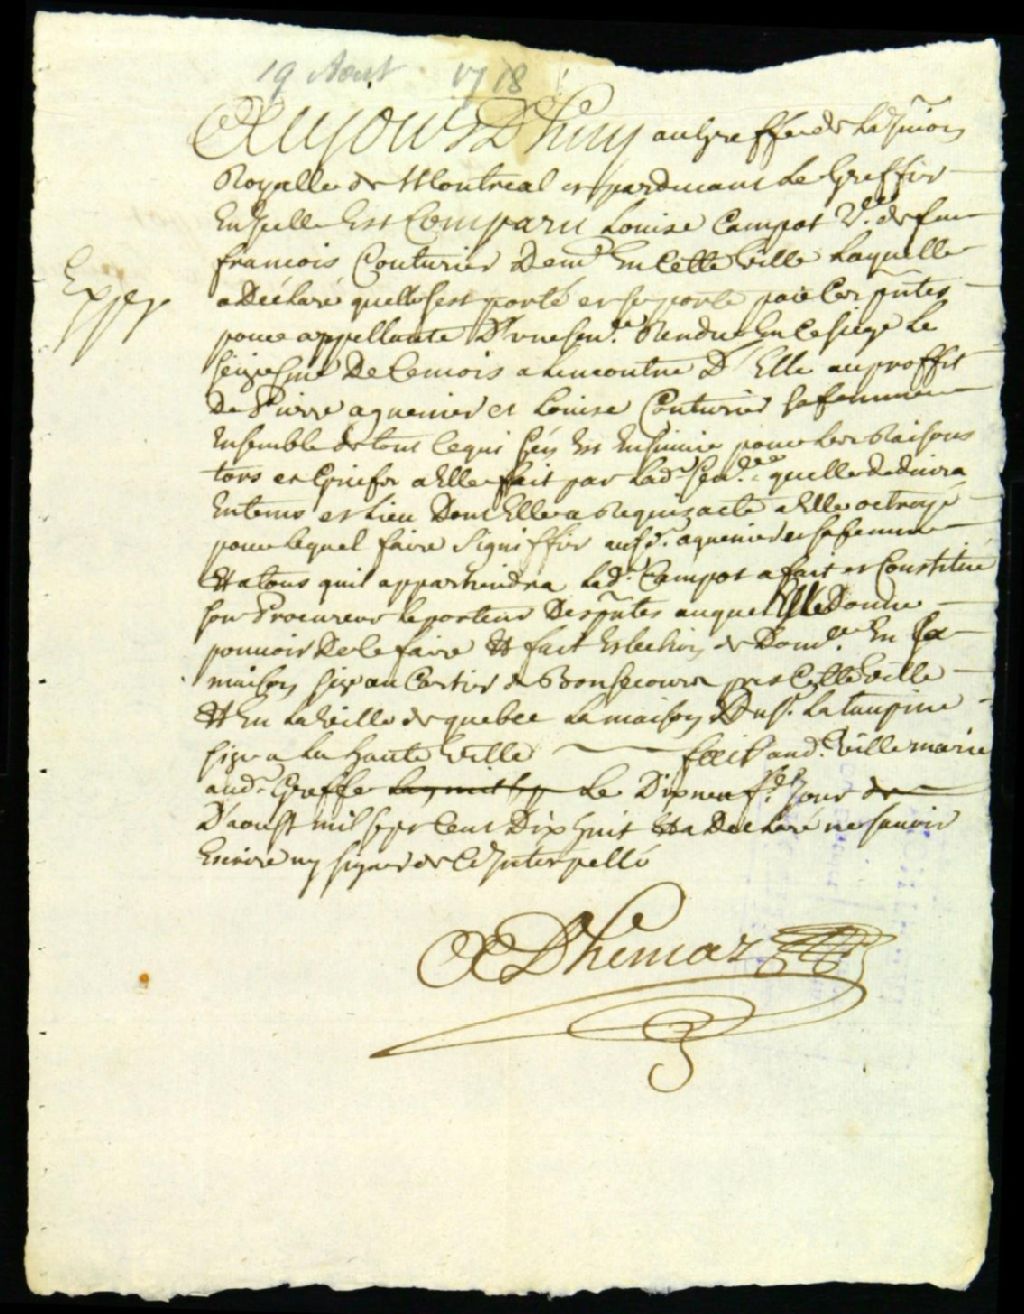 19 Aout 1718
Aujourd'huy au Greffe de la Juron
Royalle de Montreal et pardevant Le Greffier
En Icelle Est Comparu Louise Campot V.e de feu
francois Couturier dem.t En Cette Ville Laquelle
a Declaré quelle sest porté et se porte par Ces p̃ntes
pour appellante D'une sen.ce Rendue En Ce siege Le
seizie de Ce mois a lencontre D'Elle au proffit
De Pierre aguenier et Louise Couturier sa femme
Ensemble de tout Ce qui sen Est Ensuivie pour Les Raisons
tors et Griefs a Elle fait par Lad. sen.ce quelle deduira
En tems et Lieu Dont Elle a Requis acte a Elle octroyé
pour lequel faire signiffier ausd. aguenier et sa femme
Et a tous quil appartiendra Lad. Campot a fait et Constitué
son Procureur Le porteur Des p̃ntes auquel Elle Donne
pouvoir de Ce faire Et fait Eslection de Dom.le En sa
maison size au Cartier de Bonsecours pres Cette Ville
Et En La Ville de quebec La maison Du S.r La taupine
size a La haute Ville fait aud. Ville marie
aud. Greffe Le Dixneuf.e Jour de
D'aoust mil sept Cent Dix huit Et a Declaré ne savoir
Ecrire ny signer de Ce Interpellé
Exped
ADhemar